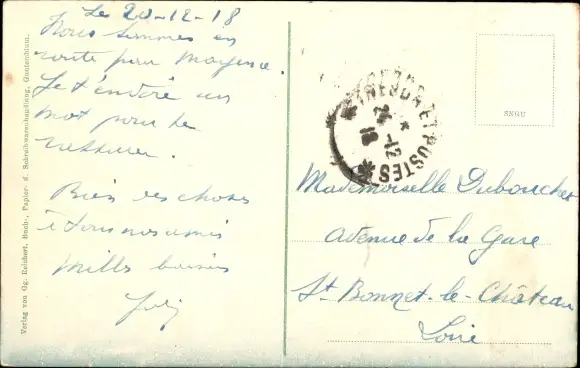 Les 20-12-18
Nous sommes en
route pour Mayence.
Je t'envoie un
mot pour te
rassurer.
Bien des choses
à tous nos amis
Mille baisers
TRESOR ET POSTES
12
18
SNGU
Mademoiselle Duboucher
Avenue de la Gare
St Bonnet-le-Château
Loire
Verlag von Og. Reichert, Buch-, Papier- u. Schreibwarenhandlung, Guntersblum.